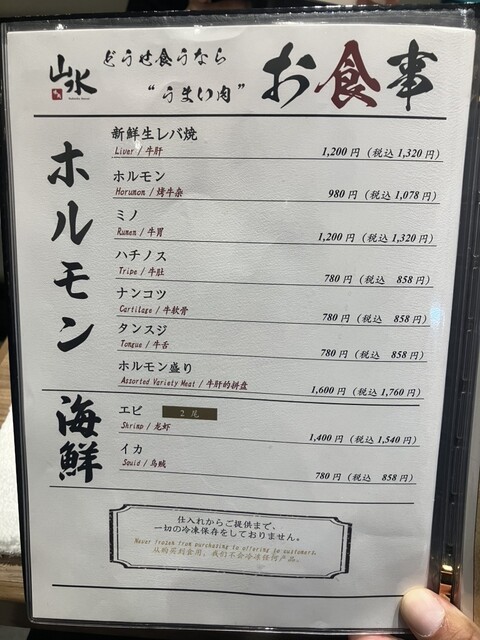 山水
どうせ食うなら
"うまい肉"
お食事
ホルモン
新鮮生レバ焼
Liver / 牛肝
1,200 円 (税込 1,320 円)
ホルモン
Horumon / 烤牛杂
980 円 (税込 1,078 円)
ミノ
Rumen / 牛胃
1,200 円 (税込 1,320 円)
ハチノス
Tripe / 牛肚
780 円 (税込 858 円)
ナンコツ
Cartilage / 牛软骨
780 円 (税込 858 円)
タンスジ
Tongue / 牛舌
780 円 (税込 858 円)
ホルモン盛り
Assorted Variety Meat / 牛肝的拼盘
1,600 円 (税込 1,760 円)
海鮮
エビ 2 尾
Shrimp / 龙虾
1,400 円 (税込 1,540 円)
イカ
Squid / 乌贼
780 円 (税込 858 円)
仕入れからご提供まで、
一切の冷凍保存をしておりません。
Never frozen from purchasing to offering to customers.
从购买到食用，我们不会冷冻任何产品。